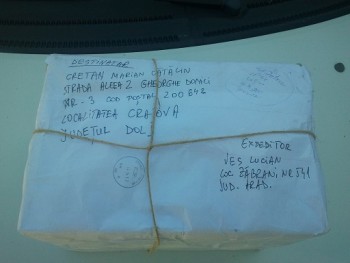 DESTINATAR
CRETAN MARIAN CĂTĂLIN
STRADA ALEEA 2 GHEORGHE DOPACI
NR. 3 COD POȘTAL 200642
LOCALITATEA CRAIOVA
JUDEȚUL DOLJ
EXPEDITOR
VEȘ LUCIAN
LOC ZĂBRANI NR 541
JUD. ARAD.